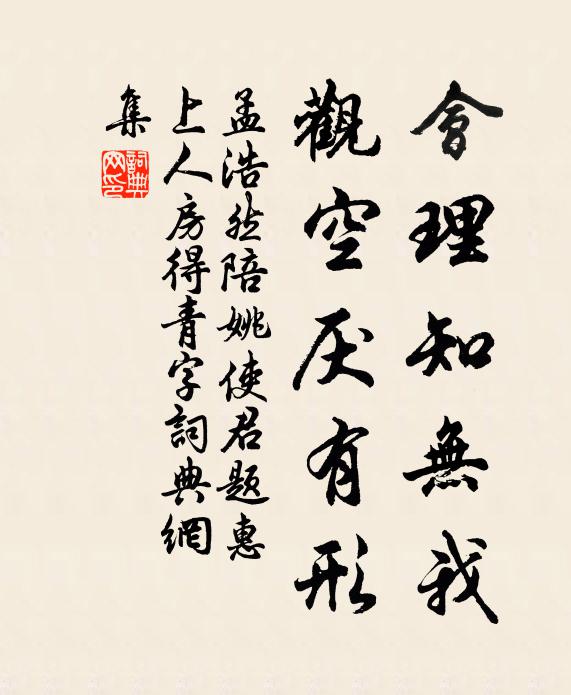 會理知無我
觀空厌有形
孟浩然陪姚使君题惠
上人房得青字詞典網
集
詞典
网印